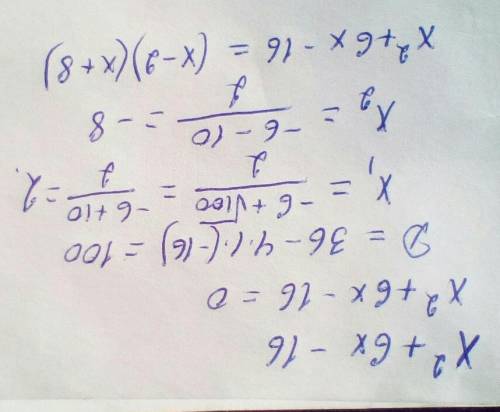 x² + 6x - 16
x² + 6x - 16 = 0
D = 36 - 4·1·(-16) = 100
x₁ = (-6 + √100)/2 = (-6 + 10)/2 = 2.
x₂ = (-6 - 10)/2 = -8
x² + 6x - 16 = (x - 2)(x + 8)